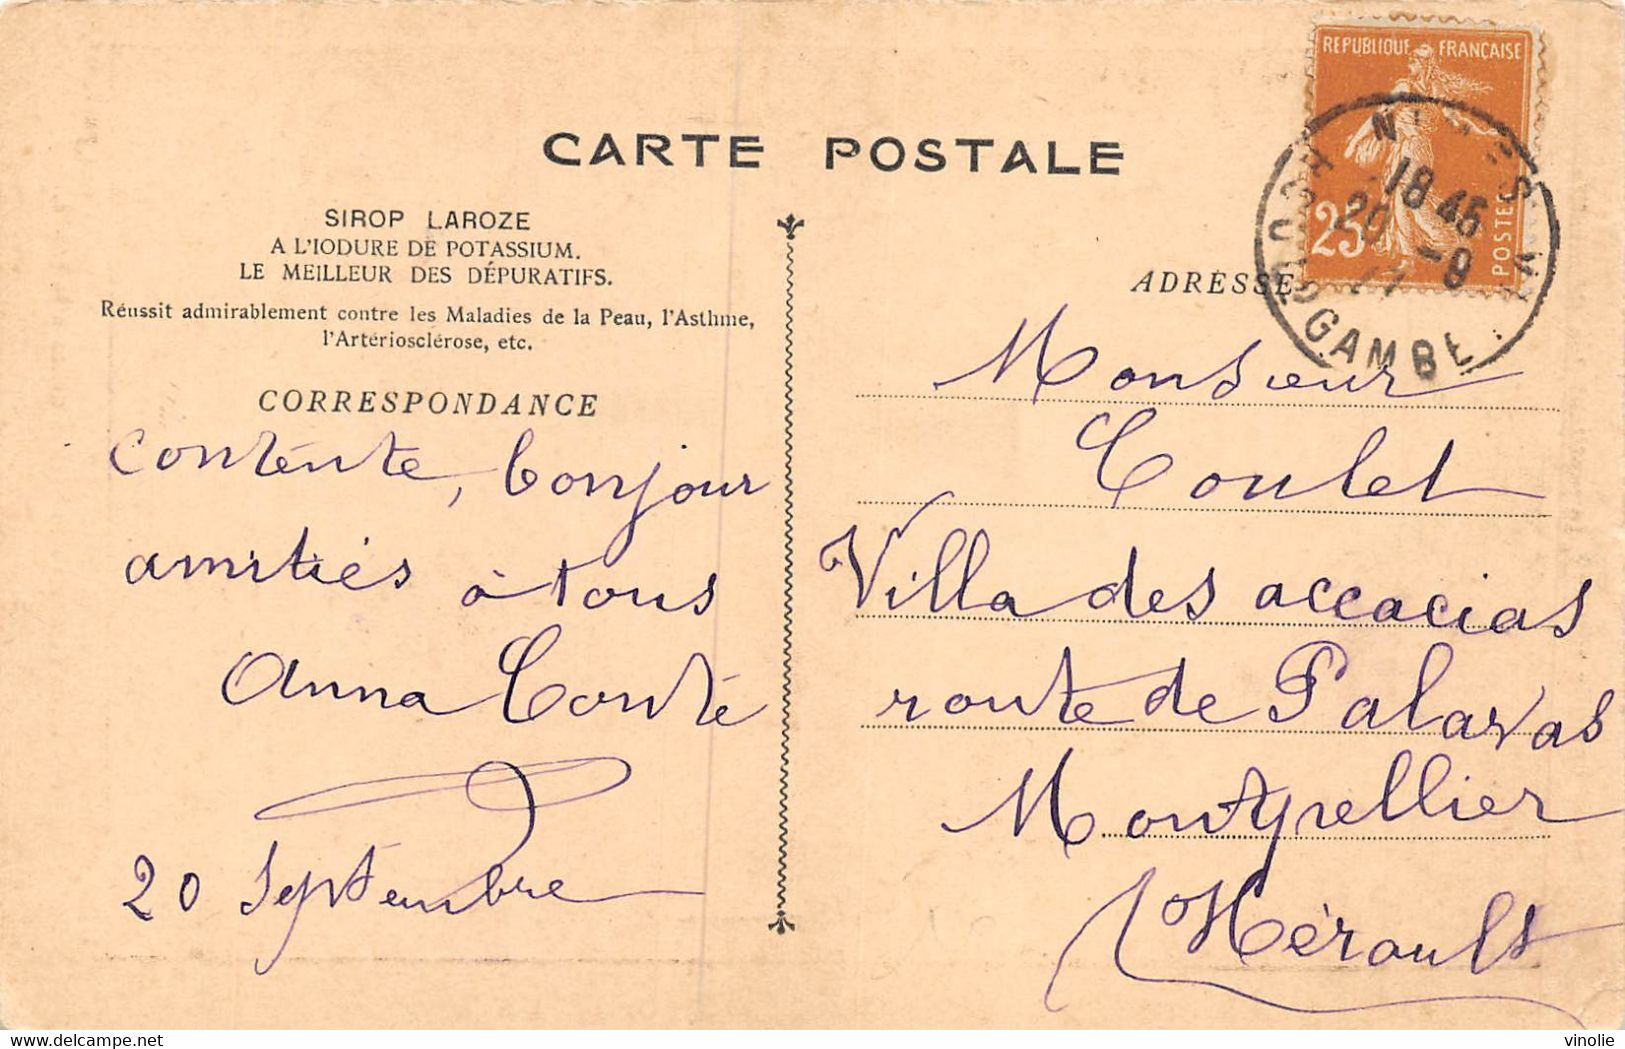 CARTE POSTALE
SIROP LAROZE
A L'IODURE DE POTASSIUM.
LE MEILLEUR DES DÉPURATIFS.
Réussit admirablement contre les Maladies de la Peau, l'Asthme,
l'Artériosclérose, etc.
CORRESPONDANCE
contente, bonjour
amitiés à tous
Anna
20 Septembre
REPUBLIQUE FRANÇAISE
25
POSTES
18 45
20 -9
GAMBE
ADRESSE
Monsieur
Coulet
Villa des accacias
route de Palavas
Montpellier
Hérault
www.delcampe.net
vinolie